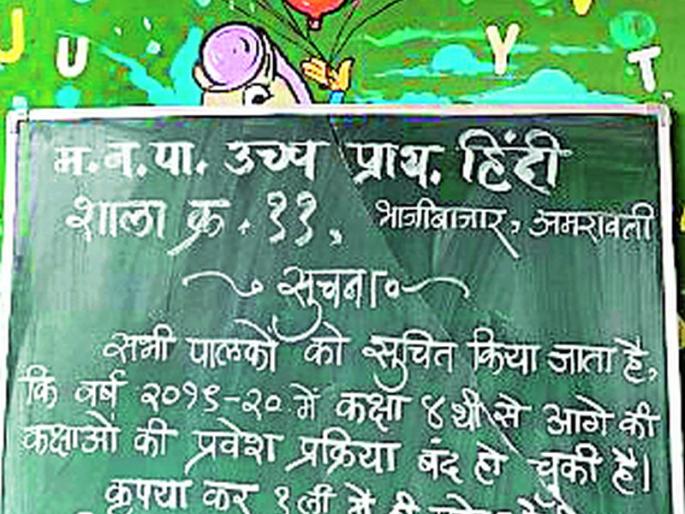 J U Y T
म.न.पा. उच्च प्राथ. हिंदी
शाला क्र. ११, भाजीबाजार, अमरावती
सूचना
सभी पालकों को सुचित किया जाता है,
कि वर्ष २०१९-२० में कक्षा ४ थी से आगे की
कक्षाओं की प्रवेश प्रक्रिया बंद हो चुकी है।
कृपया कर १ ली में ही